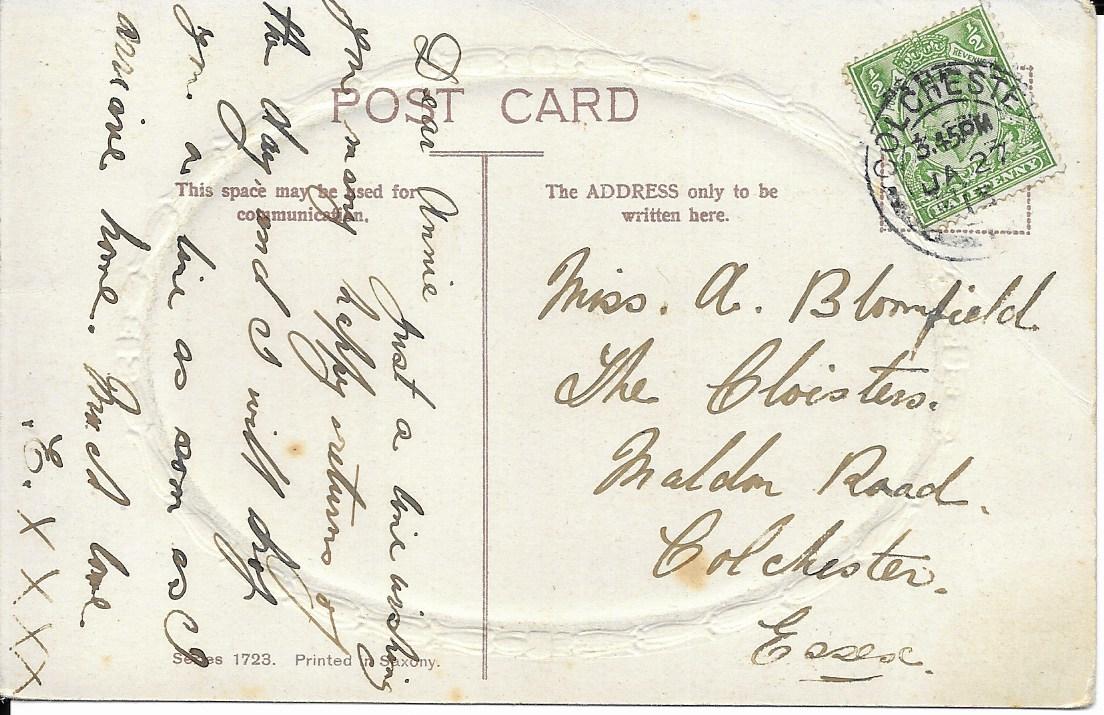 POST CARD
This space may be used for
communication.
The ADDRESS only to be
written here.
½ ½
REVENUE
COLCHESTER
3.45PM
JA 27
13
Dear Annie
Just a line wishing
you many happy returns of
the day, and I will drop
you a line as soon as I
arrive home. Much love.
E. X X X X
Miss. A. Blomfield.
The Cloisters.
Maldon Road.
Colchester.
Essex.
Series 1723. Printed in Saxony.